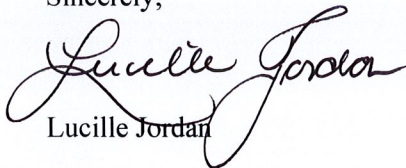 Sincerely,
Lucille Jordan
Lucille Jordan